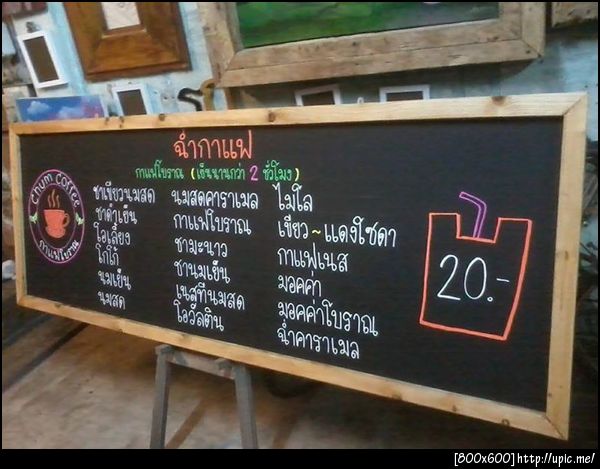 ฉ่ำกาแฟ
กาแฟโบราณ (เย็นนานกว่า 2 ชั่วโมง)
Chum Coffee
กาแฟโบราณ
ชาเขียวนมสด
ชาดำเย็น
โอเลี้ยง
โกโก้
นมเย็น
นมสด
นมสดคาราเมล
กาแฟโบราณ
ชามะนาว
ชานมเย็น
เนสทีนมสด
โอวัลติน
ไมโล
เขียว~แดงโซดา
กาแฟเนส
มอคค่า
มอคค่าโบราณ
ฉ่ำคาราเมล
20.-
[800x600]http://upic.me/